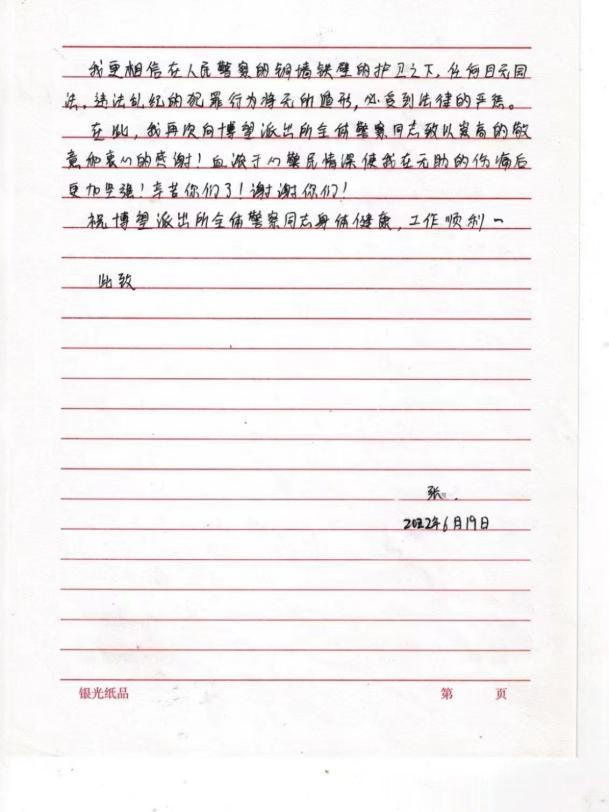 我更相信在人民警察的铜墙铁壁的护卫之下，任何目无国
法、违法乱纪的犯罪行为将无所遁形，必受到法律的严惩。
在此，我再次向博望派出所全体警察同志致以崇高的敬
意和衷心的感谢！血浓于心警民情深使我在无助的伤痛后
更加坚强！辛苦你们了！谢谢你们！
祝博望派出所全体警察同志身体健康，工作顺利一
此致
张
2022年6月19日
银光纸品 第 页